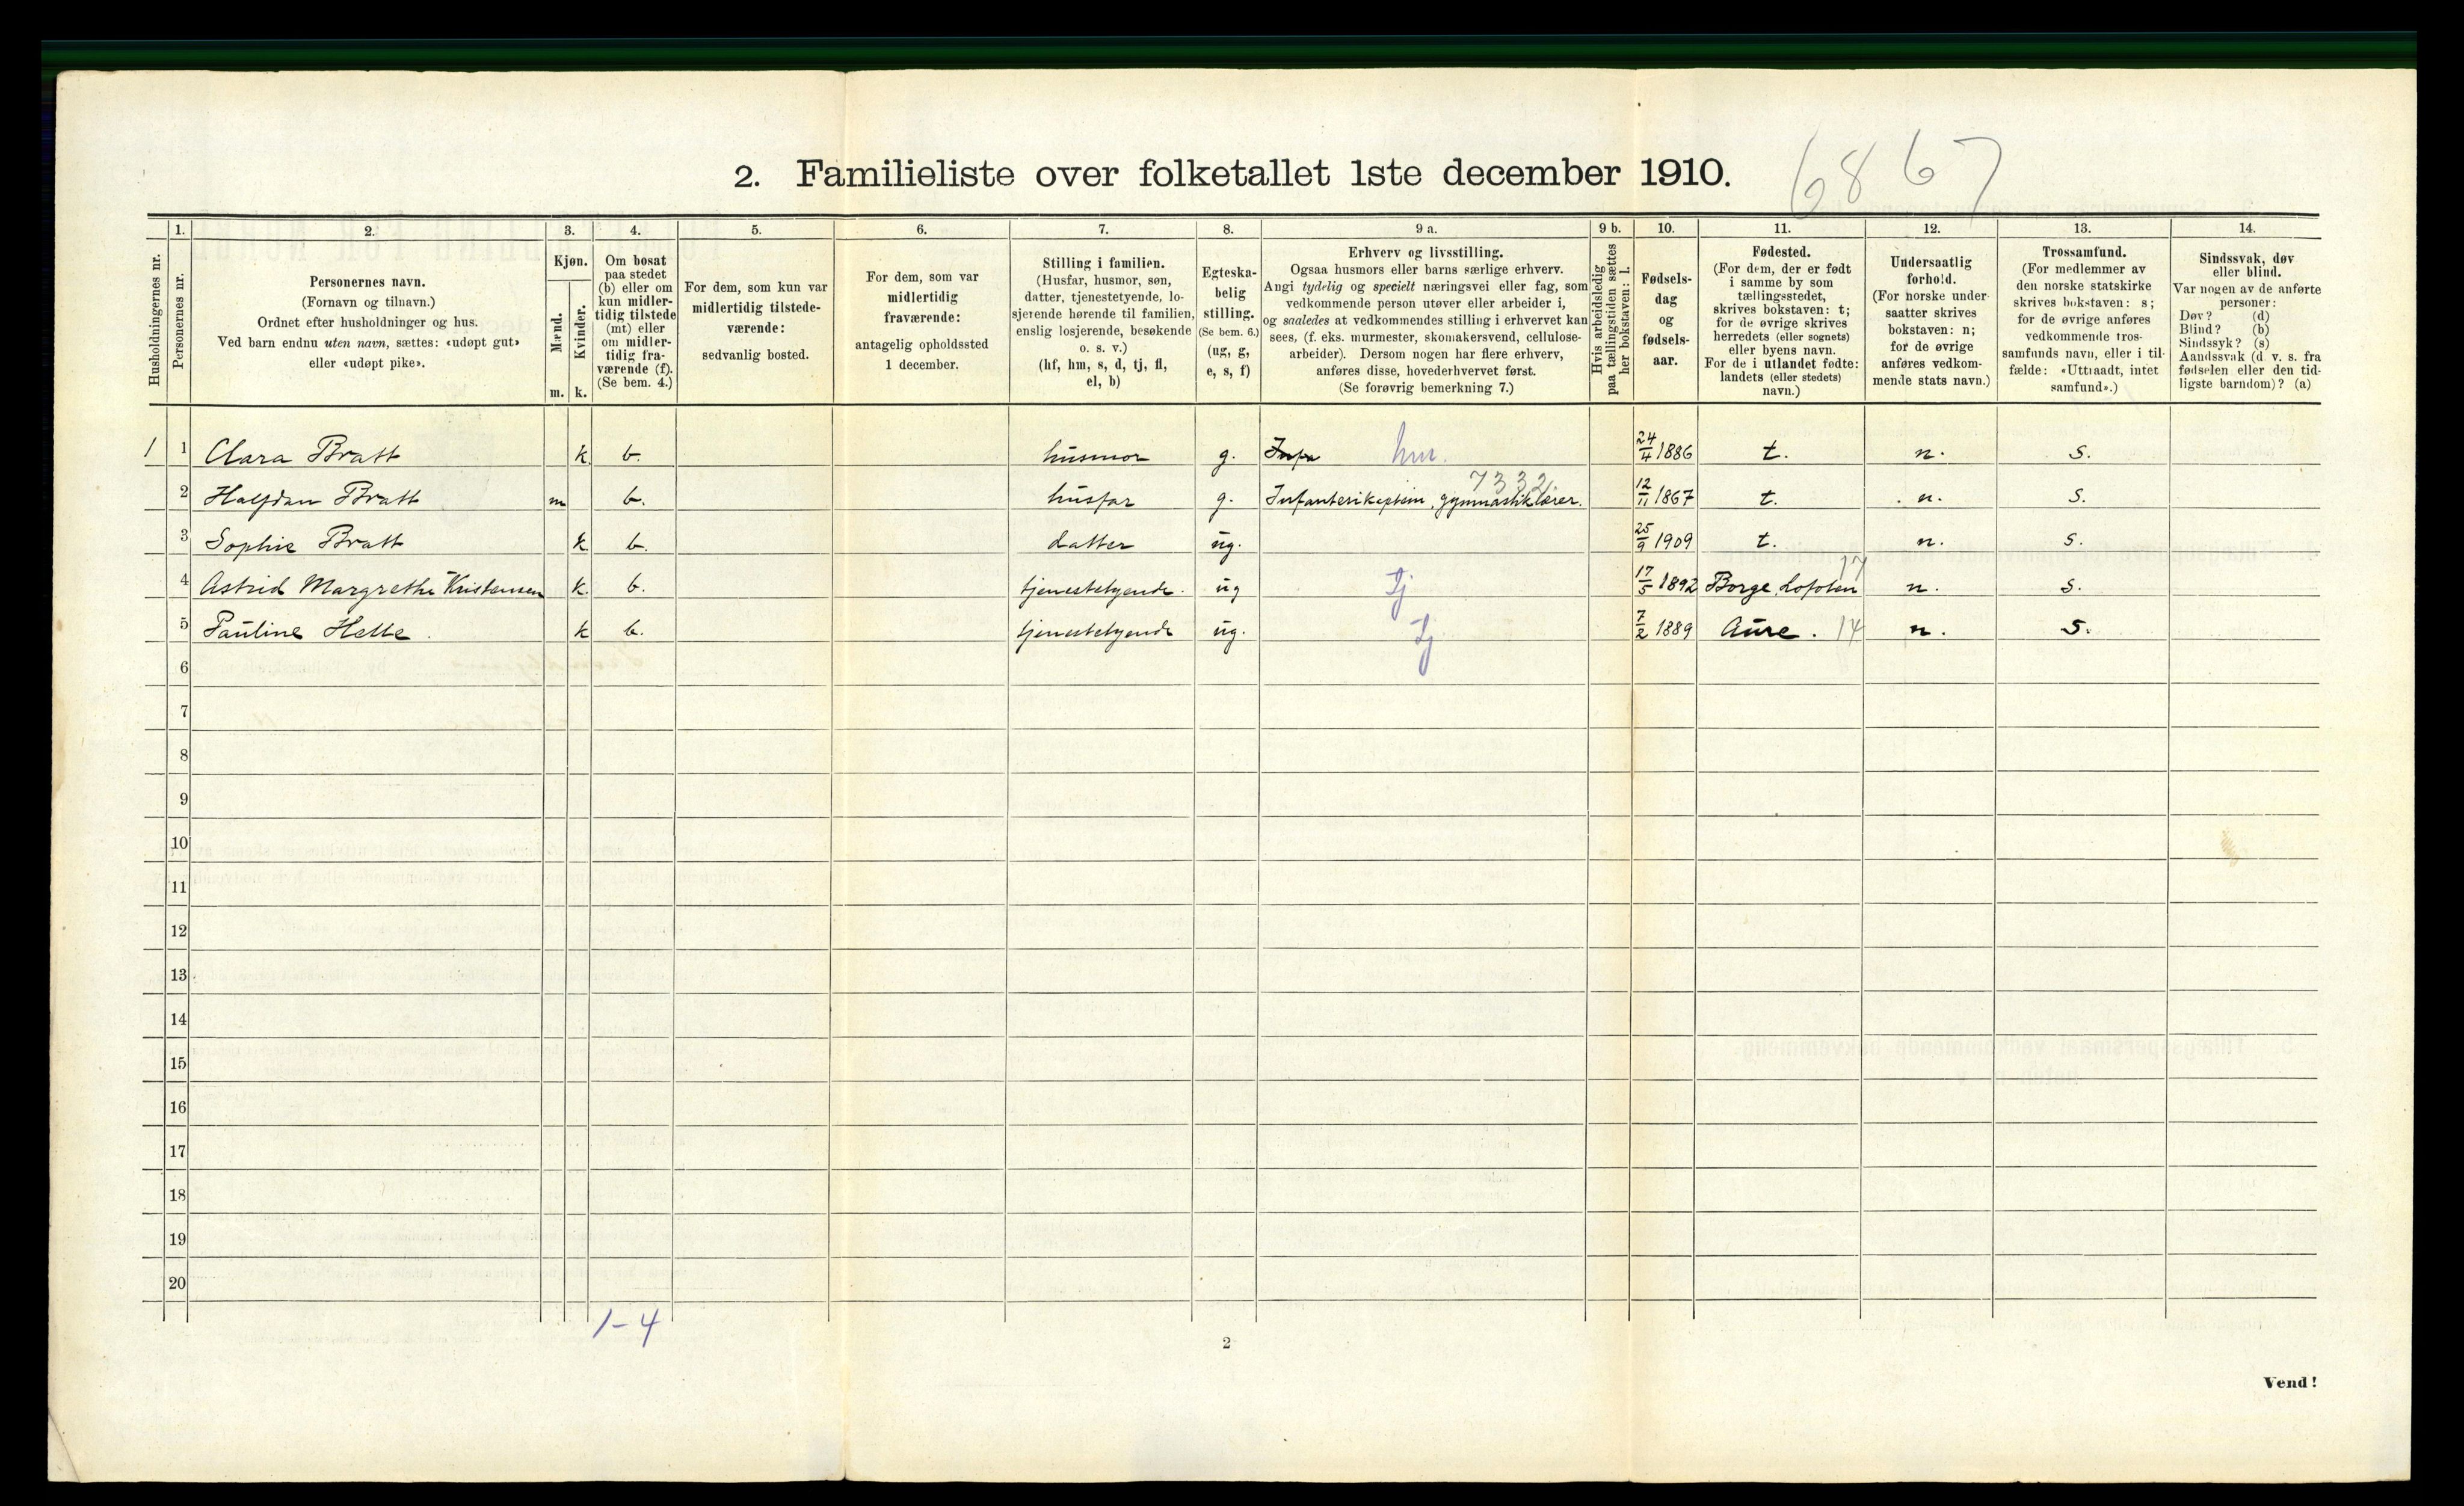 2. Familieliste over folketallet 1ste december 1910.
6867
1. 2. 3. 4. 5. 6. 7. 8. 9 a. 9 b. 10. 11. 12. 13. 14.
Husholdningernes nr.
Personernes nr.
Personernes navn.
(Fornavn og tilnavn.)
Ordnet efter husholdninger og hus.
Ved barn endnu uten navn, sættes: «udøpt gut»
eller «udøpt pike».
Kjøn.
Mænd.
Kvinder.
m. k.
Om bosat
paa stedet
(b) eller om
kun midler-
tidig tilstede
(mt) eller
om midler-
tidig fra-
værende (f).
(Se bem. 4.)
For dem, som kun var
midlertidig tilstede-
værende:
sedvanlig bosted.
For dem, som var
midlertidig
fraværende:
antagelig opholdssted
1 december.
Stilling i familien.
(Husfar, husmor, søn,
datter, tjenestetyende, lo-
sjerende hørende til familien,
enslig losjerende, besøkende
o. s. v.)
(hf, hm, s, d, tj, fl,
el, b)
Egteska-
belig
stilling.
(Se bem. 6.)
(ug, g,
e, s, f)
Erhverv og livsstilling.
Ogsaa husmors eller barns særlige erhverv.
Angi tydelig og specielt næringsvei eller fag, som
vedkommende person utøver eller arbeider i,
og saaledes at vedkommendes stilling i erhvervet kan
sees, (f. eks. murmester, skomakersvend, cellulose-
arbeider). Dersom nogen har flere erhverv,
anføres disse, hovederhvervet først.
(Se forøvrig bemerkning 7.)
Hvis arbeidsledig
paa tællingstiden sættes
her bokstaven: l.
Fødsels-
dag
og
fødsels-
aar.
Fødested.
(For dem, der er født
i samme by som
tællingsstedet,
skrives bokstaven: t;
for de øvrige skrives
herredets (eller sognets)
eller byens navn.
For de i utlandet fødte:
landets (eller stedets)
navn.)
Undersaatlig
forhold.
(For norske under-
saatter skrives
bokstaven: n;
for de øvrige
anføres vedkom-
mende stats navn.)
Trossamfund.
(For medlemmer av
den norske statskirke
skrives bokstaven: s;
for de øvrige anføres
vedkommende tros-
samfunds navn, eller i til-
fælde: «Uttraadt, intet
samfund».)
Sindssvak, døv
eller blind.
Var nogen av de anførte
personer:
Døv? (d)
Blind? (b)
Sindssyk? (s)
Aandssvak (d. v. s. fra
fødselen eller den tid-
ligste barndom)? (a)
1 1 Clara Bratt k. b. husmor g. Infa hm. 24/4 1886 t. n. s.
7332
2 Halfdan Bratt m b. husfar g. Infanterikaptein, gymnastiklærer. 12/11 1867 t. n. s.
3 Sophie Bratt k. b. datter ug. 25/9 1909 t. n. s.
4 Astrid Margrethe Kristensen k. b. tjenestetyende. ug Tj 17/5 1892 Borge, Lofoten 17 n. s.
5 Pauline Helle. k b. tjenestetyende ug. Tj 7/2 1889 Aure. 14 n. s.
6
7
8
9
10
11
12
13
14
15
16
17
18
19
20
1-4
2
Vend!